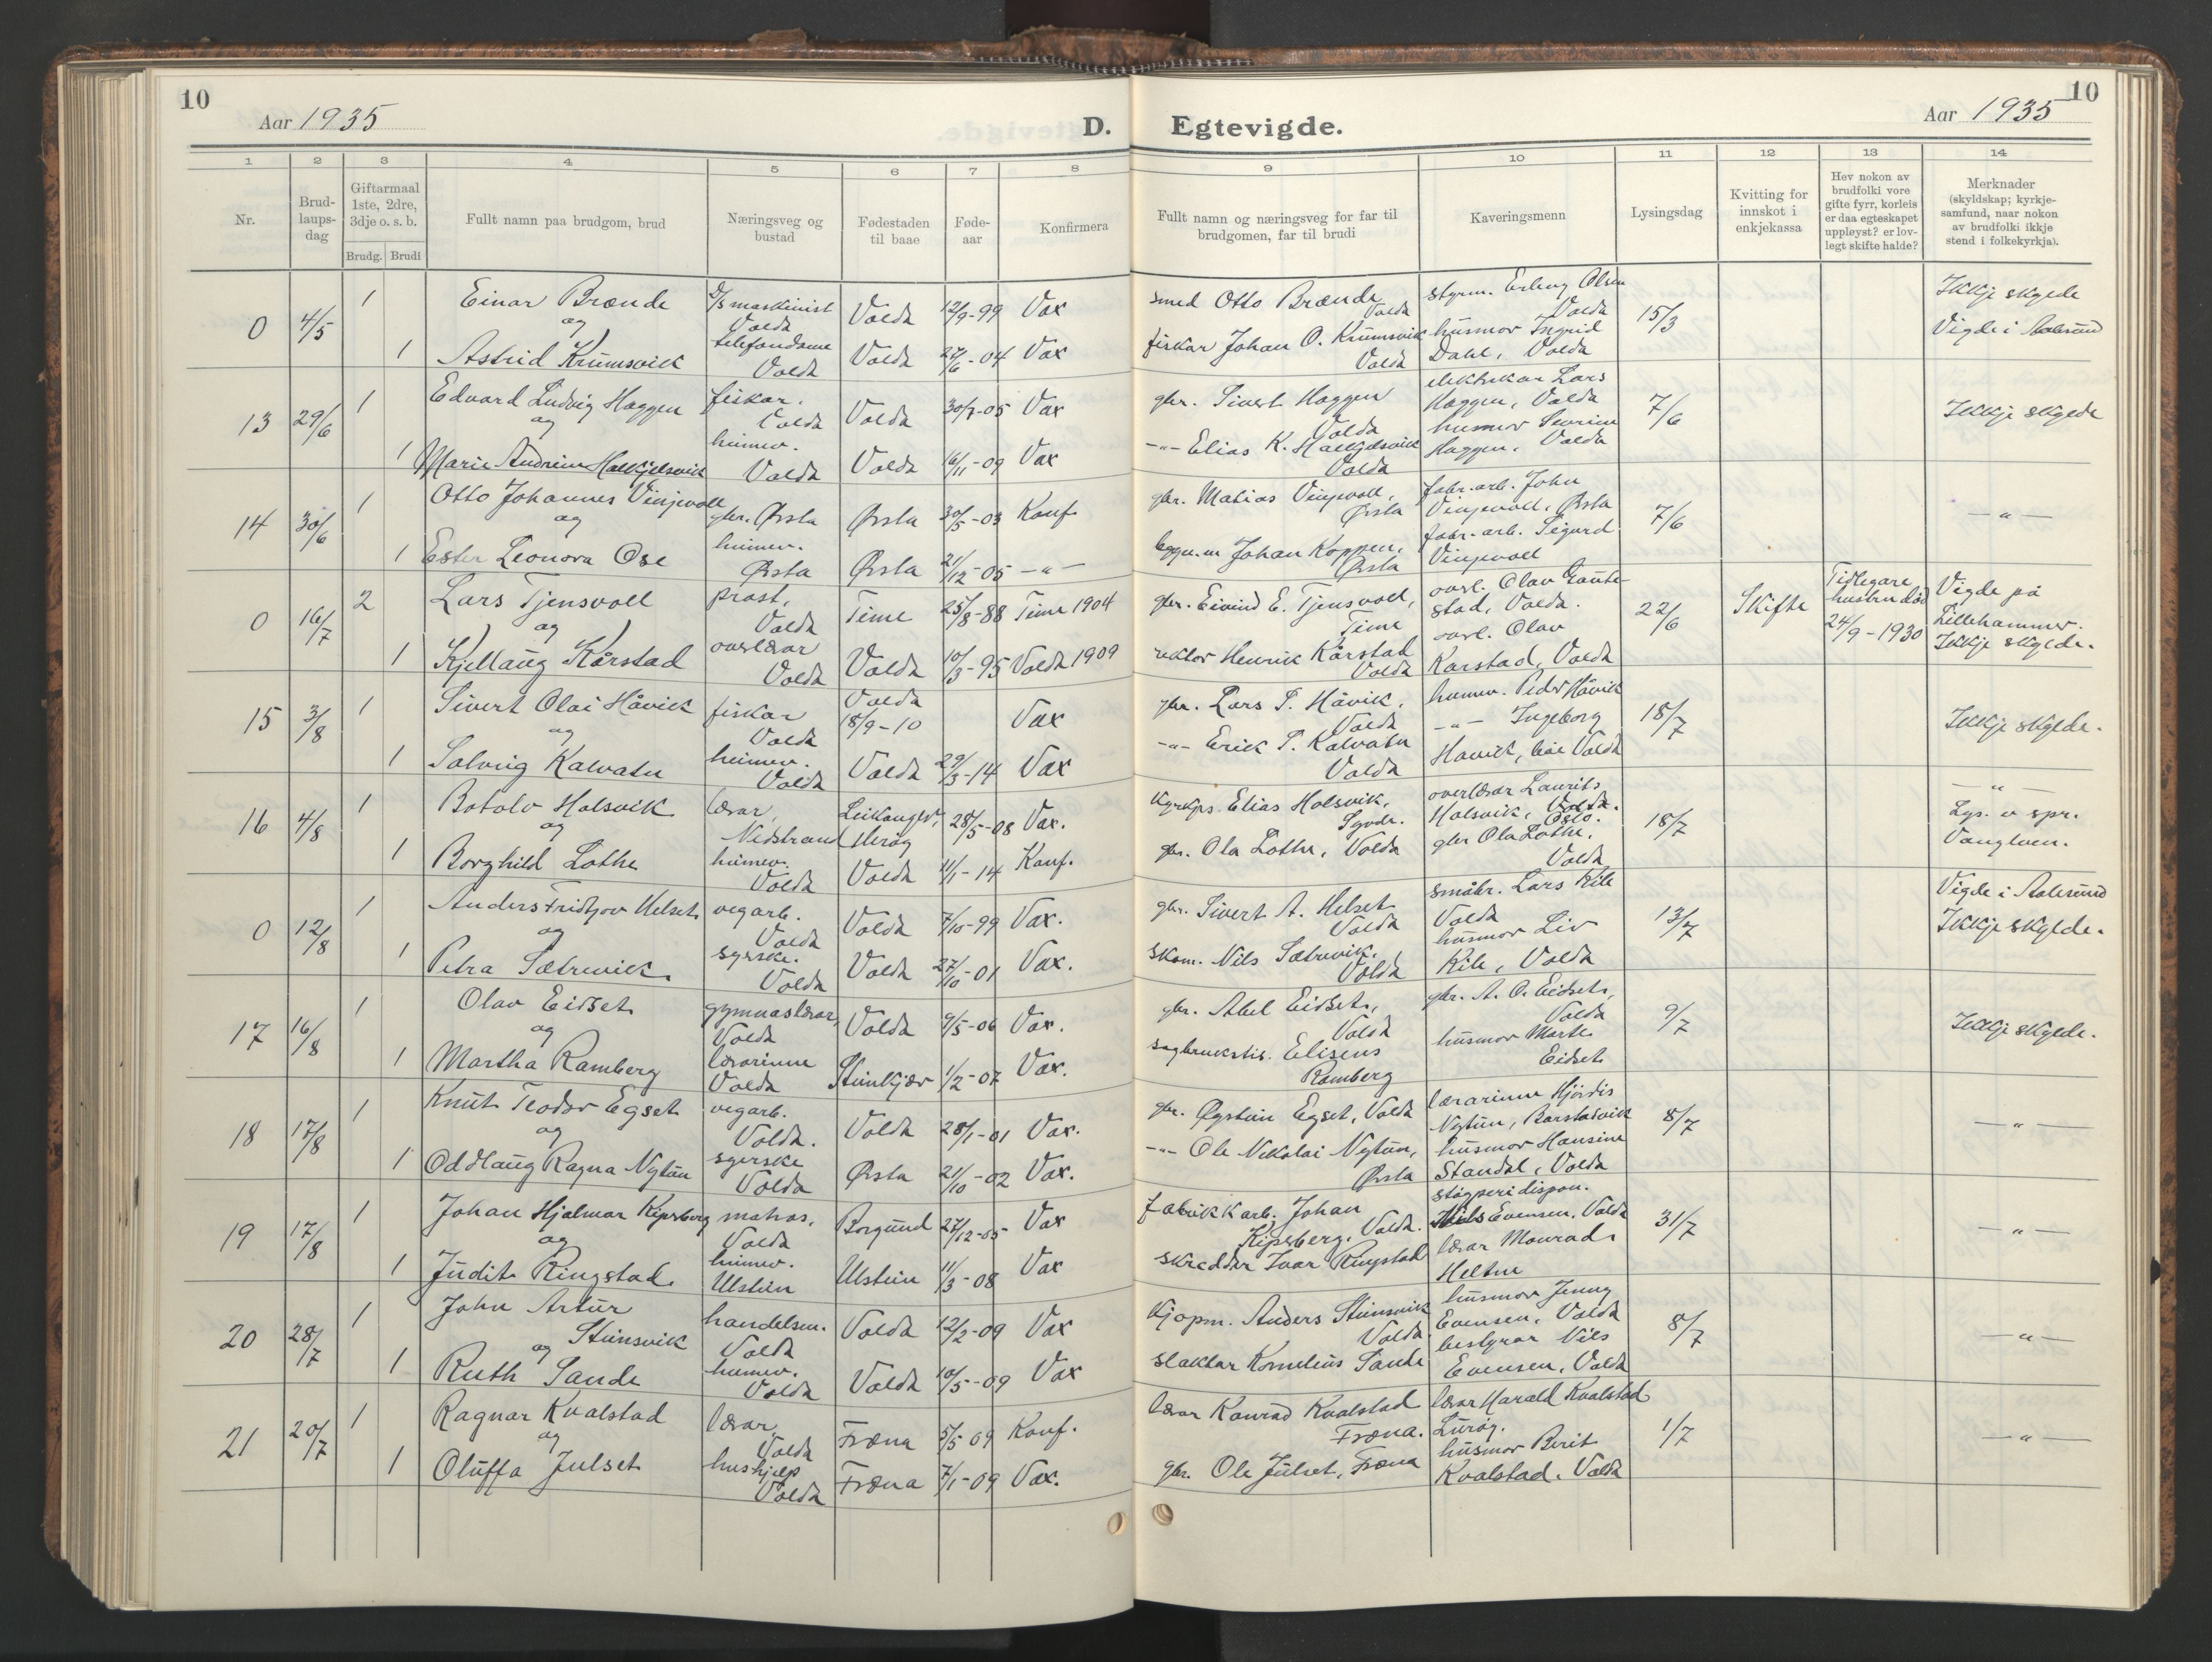 10
Aar 1935
D.
Egtevigde.
Aar 1935
10
1 2 3 4 5 6 7 8 9 10 11 12 13 14
Nr.
Brud-
laups-
dag
Giftarmaal
1ste, 2dre,
3dje o. s. b.
Brudg. Brudi
Fullt namn paa brudgom, brud
Næringsveg og
bustad
Fødestaden
til baae
Føde-
aar
Konfirmera
Fullt namn og næringsveg for far til
brudgomen, far til brudi
Kaveringsmenn
Lysingsdag
Kvitting for
innskot i
enkjekassa
Hev nokon av
brudfolki vore
gifte fyrr, korleis
er daa egteskapet
uppløyst? er lov-
legt skifte halde?
Merknader
(skyldskap; kyrkje-
samfund, naar nokon
av brudfolki ikkje
stend i folkekyrkja).
0 4/5 1 Einar Brænde D/S maskinist Volda Volda 12/9-99 Vax
og
1 Astrid Krumsvik telefondame Volda Volda 27/6-04 Vax
smed Otto Brænde Volda
fiskar Johan O. Krumsvik Volda
styrm. Erling Olsen Volda
husmor Ingrid
Dahl, Volda
15/3
Ikkje skylde
Vigde i Aalesund
13 29/6 1 Edvard Ludvig Haggen fiskar. Volda Volda 30/7-05 Vax
og
1 Marie Andrine Halkjelsvik heimev. Volda Volda 16/11-09 Vax
gbr. Sivert Haggen Volda
-"- Elias K. Halkjelsvik Volda
elektrikar Lars
Haggen, Volda
husmor Severine
Haggen, Volda
7/6
Ikkje skylde
14 30/6 1 Otto Johannes Vinjevoll gbr. Ørsta Ørsta 30/5-03 Konf.
og
1 Ester Leonora Ose heimev. Ørsta Ørsta 21/12-05 -"-
gbr. Matias Vinjevoll, Ørsta
byggm. Johan Koppen, Ørsta
fabr. arb. John
Vinjevoll, Ørsta
fabr. arb. Sigurd
Vinjevoll
7/6
-"-
0 16/7 2 Lars Tjensvoll prost, Volda Time 25/8-88 Time 1904
og
1 Kjellaug Kårstad overlærar Volda Volda 10/3-95 Volda 1909
gbr. Eivind E. Tjensvoll, Time
rektor Henrik Kårstad Volda
overl. Olav Gaute-
stad, Volda.
overl. Olav
Karstad, Volda
22/6
Skifte
Tidlegare
hustru død
24/9-1930
Vigde på
Lillehammer.
Ikkje skylde.
15 3/8 1 Sivert Olai Håvik fiskar Volda Volda 18/9-10 Vax
og
1 Solveig Kalvatn heimev. Volda Volda 29/3-14 Vax
gbr. Lars P. Håvik, Volda
-"- Erik P. Kalvatn Volda
heimev. Peder Håvik
-"- Ingeborg
Håvik, båe Volda
18/7
Ikkje skylde.
16 4/8 1 Botolv Holsvik lærar, Nedstrand Leikanger, Herøy 28/5-08 Vax.
og
1 Borghild Lothe heimev. Volda Volda 11/1-14 Konf.
kyrkjes. Elias Holsvik, Syvde.
gbr. Ola Lothe, Volda
overlærar Laurits
Holsvik, Oslo.
gbr Ola Lothe,
Volda
18/7
-"-
Lys. o spr.
12 Anders Fridtjov Helset vegarb. Volda Volda 7/10-99 Vax.
0 12/8 1 og
1 Petra Sætrevik syerske. Volda Volda 27/10-01 Vax.
gbr. Sivert A. Helset Volda
skom. Nils Sætrevik, Volda
småbr. Lars Kile
Volda
husmor Liv
Kile, Volda
13/7
Vigde i Aalesund
Ikkje skylde.
17 16/8 1 Olav Eidset gymnaslærar, Volda Volda 9/5-06 Vax.
og
1 Martha Ramberg lærarinne Volda Steinkjær 1/2-07 Vax.
gbr. Abel Eidset, Volda
sagbrukstir. Eliseus
Ramberg
gbr. A. O. Eidset,
Volda
husmor Marte
Eidset
9/7
Ikkje skylde.
18 17/8 1 Knut Teodor Egset vegarb. Volda. Volda 28/1-01 Vax.
og
1 Oddlaug Ragna Nytun syerske Volda Ørsta 21/10-02 Vax.
gbr. Øystein Egset, Volda
-"- Ole Nikolai Nytun, Ørsta
lærarinne Hjørdis
Nytun, Barstadvik
husmor Hansine
Standal, Volda
8/7
-"-
19 17/8 1 Johan Hjalmar Kipsberg matros, Volda Borgund 27/12-05 Vax
og
1 Judit Ringstad heimev. Ulstein Ulstein 11/3-08 Vax
fabrikkarb. Johan
Kipsberg, Volda.
skreddar Ivar Ringstad
støyperi dispon.
Nils Evensen, Volda
lærar Monrad
Heltne
31/7
-"-
20 28/7 1 John Artur Steinsvik handelsm. Volda Volda 12/2-09 Vax
og
1 Ruth Sande heimev. Volda Volda 10/5-09 Vax
kjøpm. Anders Steinsvik Volda
slaktar Kornelius Sande
husmor Jenny
Evensen, Volda
bestyrar Nils
Evensen, Volda
8/7
-"-
21 20/7 1 Ragnar Kvalstad lærar, Volda Fræna 5/5 09 Konf.
og
1 Oluffa Julset hushjelp Volda Fræna 7/1-09 Vax.
lærar Konrad Kvalstad Fræna.
gbr. Ole Julset, Fræna
lærar Harald Kvalstad
Lurøy.
husmor Berit
Kvalstad, Volda
1/7
-"-